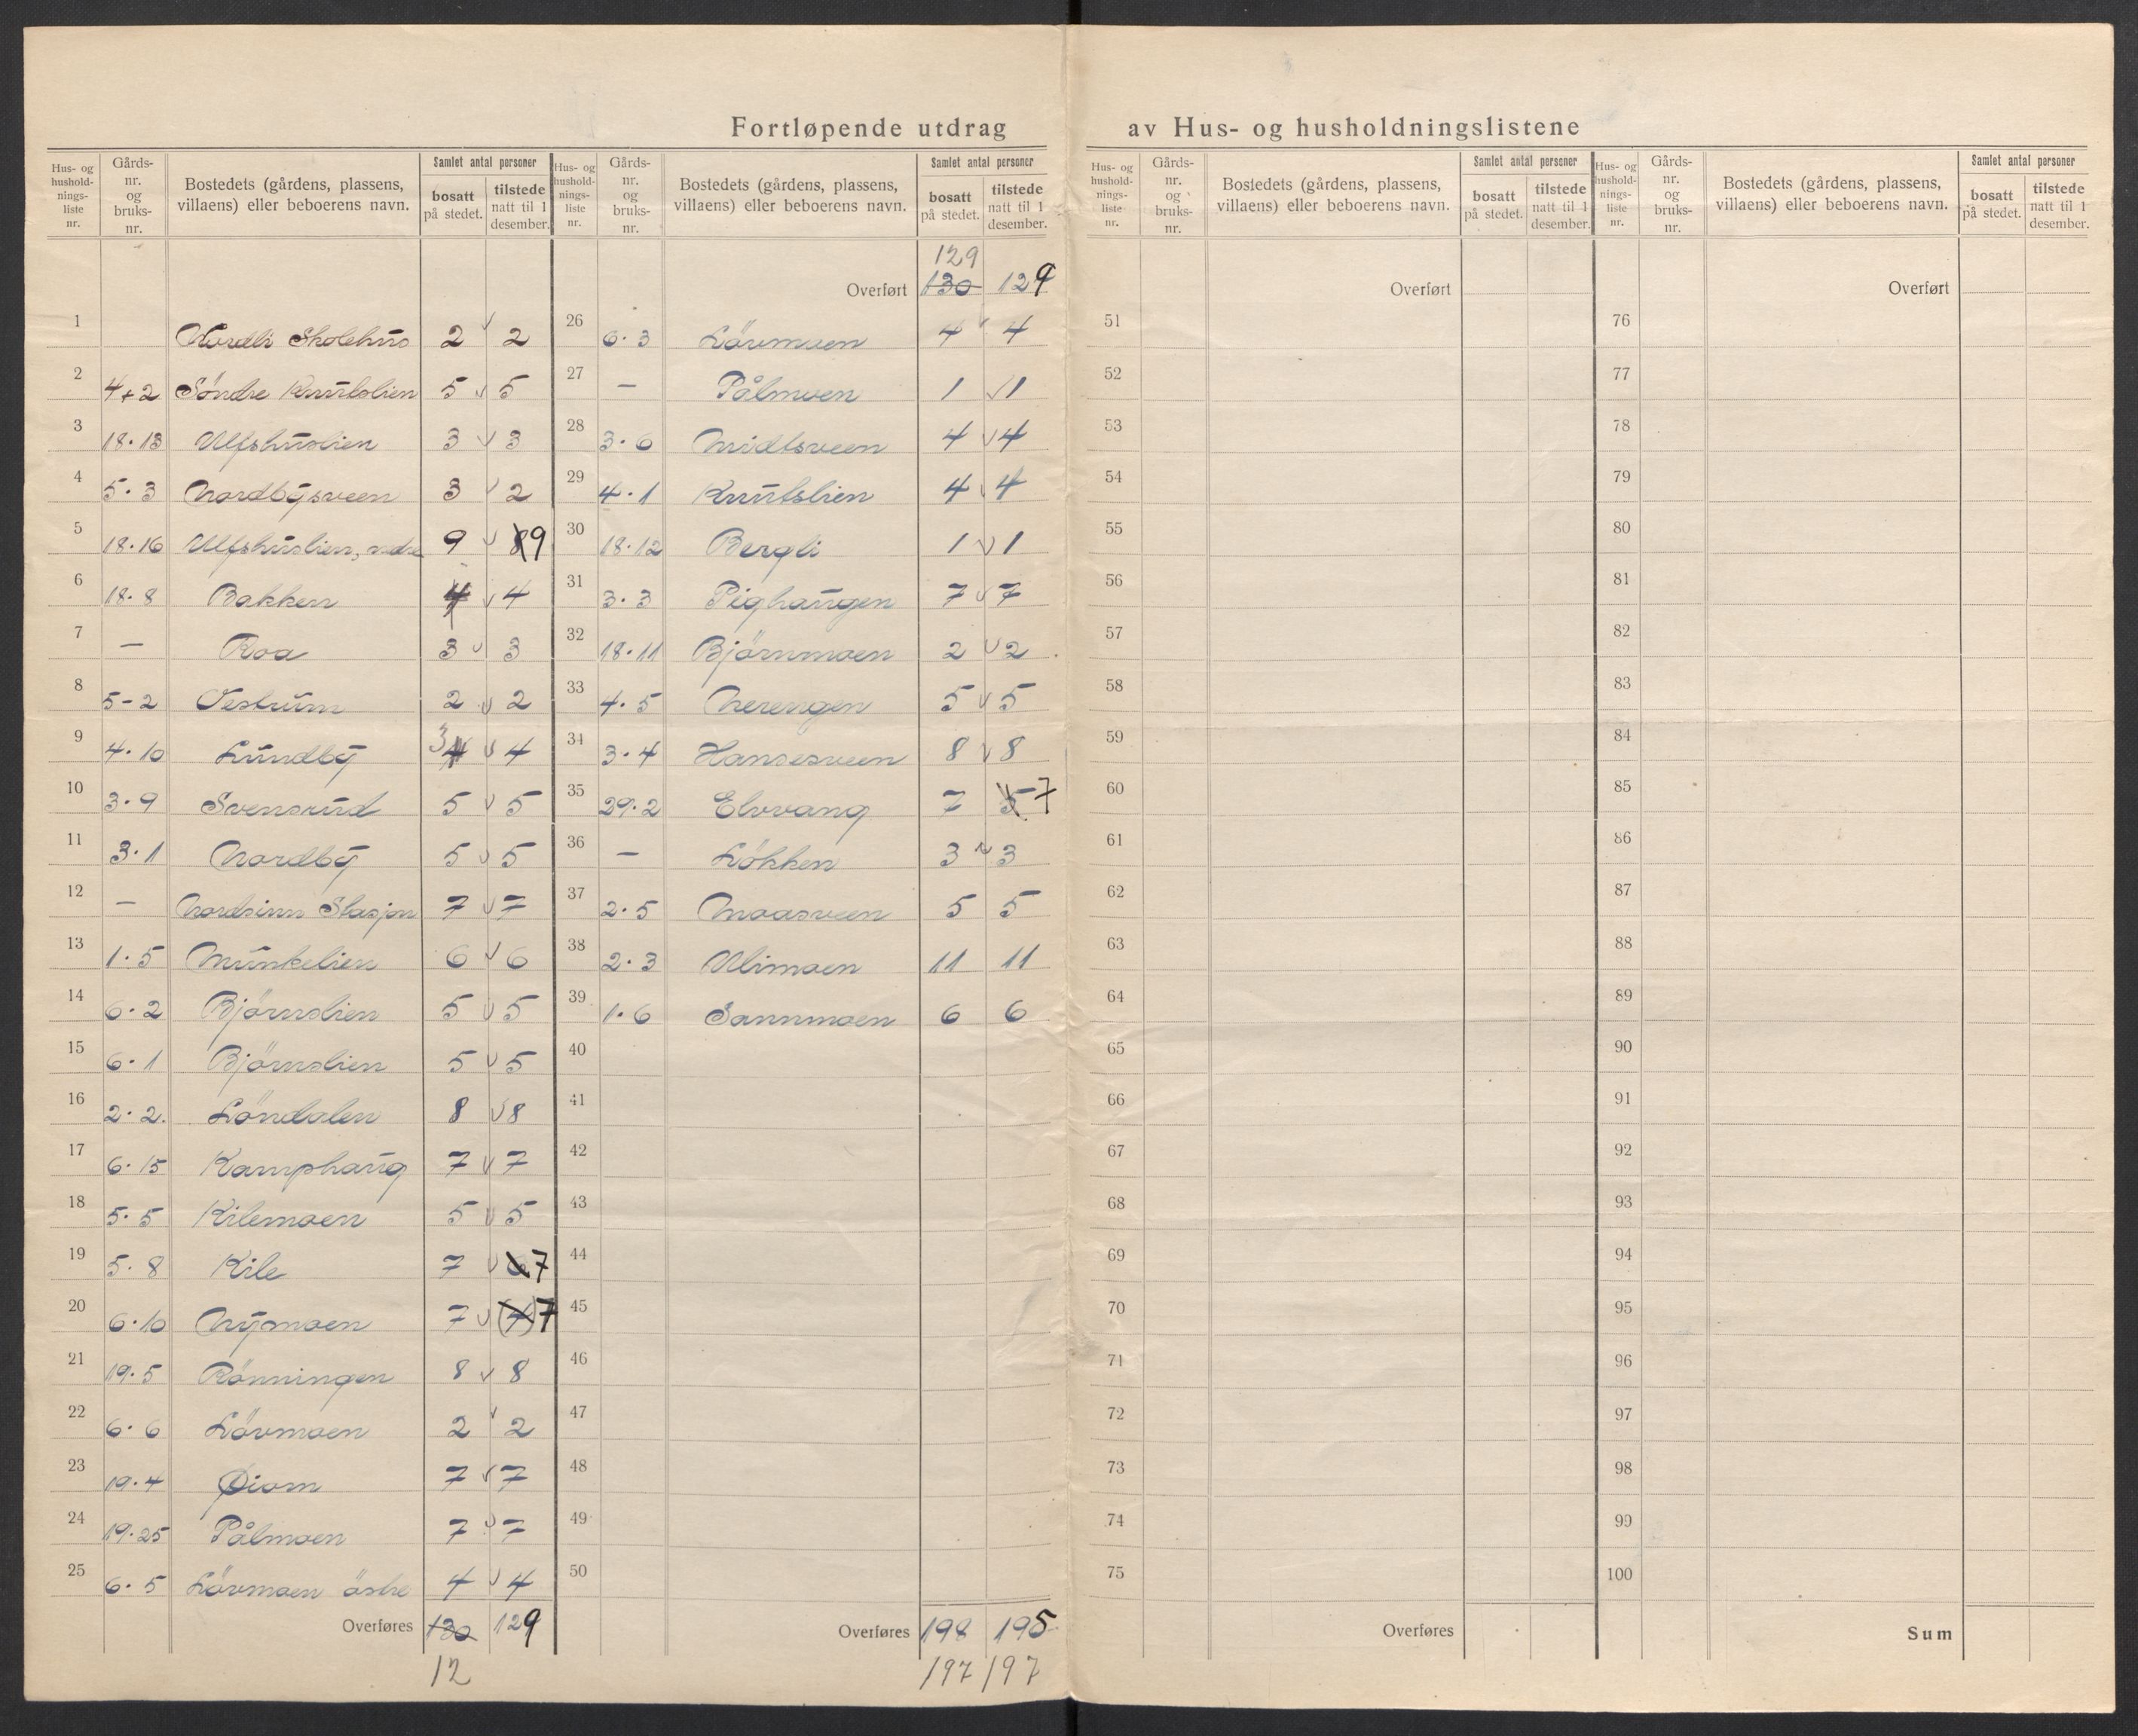 Fortløpende utdrag av Hus- og husholdningslistene
Hus- og hushold-nings-liste nr. Gårds-nr. og bruks-nr. Bostedets (gårdens, plassens, villaens) eller beboerens navn. Samlet antal personer bosatt på stedet. tilstede natt til 1 desember.
Hus- og hushold-nings-liste nr. Gårds-nr. og bruks-nr. Bostedets (gårdens, plassens, villaens) eller beboerens navn. Samlet antal personer bosatt på stedet. tilstede natt til 1 desember.
1 Nordli Skolehus 2 2
2 4+2 Söndre Knutslien 5 5
3 18.13 Ulfshuslien 3 3
4 5.3 Nordbysveen 3 2
5 18.16 Ulfshuslien, nedre 9 8 9
6 18.8 Bakken 4 4
7 — Roa 3 3
8 5-2 Vestrum 2 2
9 4.10 Lundby 3 4 4
10 3.9 Svensrud 5 5
11 3.1 Nordby 5 5
12 — Nordsinn Stasjon 7 7
13 1.5 Munkelien 6 6
14 6.2 Björnslien 5 5
15 6.1 Björnslien 5 5
16 2.2. Löndalen 8 8
17 6.15 Kamphaug 7 7
18 5.5 Kilemoen 5 5
19 5.8 Kile 7 6 7
20 6.10 Nymoen 7 (7) 7
21 19.5 Rönningen 8 8
22 6.6 Lövmoen 2 2
23 19.4 Øiom 7 7
24 19.25 Pålmoen 7 7
25 6.5 Lövmoen östre 4 4
Overføres 130 129
12
129
Overført 130 129
26 6.3 Lövmoen 4 4
27 — Pålmoen 1 1
28 3.6 Midtsveen 4 4
29 4.1 Knutslien 4 4
30 18.12 Bergli 1 1
31 3.3 Pighaugen 7 7
32 18.11 Björnmoen 2 2
33 4.5 Nerengen 5 5
34 3.4 Hansesveen 8 8
35 29.2 Elvvang 7 5 7
36 — Lökken 3 3
37 2.5 Moasveen 5 5
38 2.3 Ulimoen 11 11
39 1.6 Sannmoen 6 6
40
41
42
43
44
45
46
47
48
49
50
Overføres 198 195
197 197
Hus- og hushold-nings-liste nr. Gårds-nr. og bruks-nr. Bostedets (gårdens, plassens, villaens) eller beboerens navn. Samlet antal personer bosatt på stedet. tilstede natt til 1 desember.
Hus- og hushold-nings-liste nr. Gårds-nr. og bruks-nr. Bostedets (gårdens, plassens, villaens) eller beboerens navn. Samlet antal personer bosatt på stedet. tilstede natt til 1 desember.
Overført
51
52
53
54
55
56
57
58
59
60
61
62
63
64
65
66
67
68
69
70
71
72
73
74
75
Overføres
Overført
76
77
78
79
80
81
82
83
84
85
86
87
88
89
90
91
92
93
94
95
96
97
98
99
100
Sum